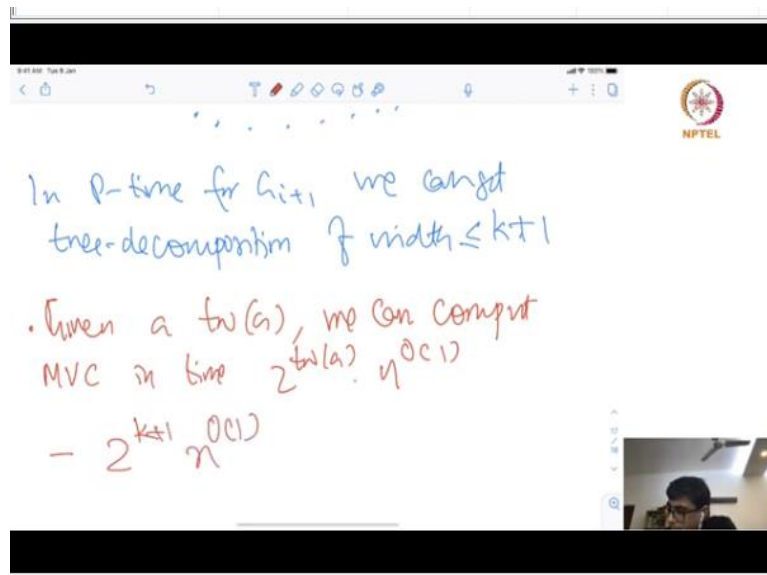 9:41 AM Tue 9 Jan
100%
NPTEL
In P-time for Gi+1 we can get
tree-decomposition of width ≤ k+1
. Given a tw(G), we can comput
MVC in time 2^tw(G) . n^O(1)
- 2^k+1 n^O(1)